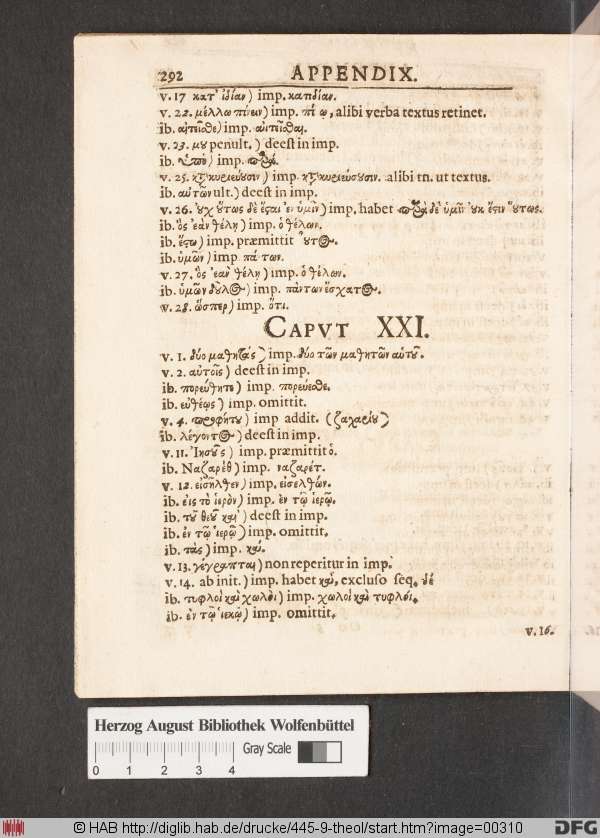 292 APPENDIX.
v. 17 κατ' ἰδίαν) imp. καπιδίαν.
v. 22. μέλλω πίνειν) imp. πίω, alibi verba textus retinet.
ib. αἰτεῖσθε) imp. αἰτεῖσθαι.
v. 23. μου penult.) deest in imp.
ib. ὑπὸ) imp. παρὰ.
v. 25. κατακυριεύουσιν) imp. κατακυριεύσουσιν. alibi tn. ut textus.
ib. αὐτῶν ult.) deest in imp.
v. 26. οὐχ οὕτως δὲ ἔσται ἐν ὑμῖν) imp. habet παρὰ δὲ ὑμῖν οὐκ ἔστιν οὕτως.
ib. ὃς ἐὰν θέλῃ) imp. ὁ θέλων.
ib. ἔστω) imp. præmittit οὗτος.
ib. ὑμῶν) imp. πάντων.
v. 27. ὃς ἐὰν θέλῃ) imp. ὁ θέλων.
ib. ὑμῶν δοῦλος) imp. πάντων ἔσχατος.
v. 28. ὥσπερ) imp. ὅτι.
CAPVT XXI.
v. 1. δύο μαθητὰς) imp. δύο τῶν μαθητῶν αὐτοῦ.
v. 2. αὐτοῖς) deest in imp.
ib. πορεύθητε) imp. πορεύεσθε.
ib. εὐθέως) imp. omittit.
v. 4. προφήτου) imp addit. (ζαχαρίου)
ib. λέγοντος) deest in imp.
v. 11. Ἰησοῦς) imp. præmittit ὁ.
ib. Ναζαρὲθ) imp. ναζαρέτ.
v. 12. εἰσῆλθεν) imp. εἰσελθών.
ib. εἰς τὸ ἱερὸν) imp. ἐν τῷ ἱερῷ.
ib. τοῦ θεοῦ καὶ) deest in imp.
ib. ἐν τῷ ἱερῷ) imp. omittit.
ib. τὰς) imp. καὶ.
v. 13. γέγραπται) non reperitur in imp.
v. 14. ab init.) imp. habet καὶ, excluso seq. δέ
ib. τυφλοὶ καὶ χωλοὶ) imp. χωλοὶ καὶ τυφλοί.
ib. ἐν τῷ ἱερῷ) imp. omittit.
v. 16.
Herzog August Bibliothek Wolfenbüttel
Gray Scale
0 1 2 3 4
© HAB http://diglib.hab.de/drucke/445-9-theol/start.htm?image=00310
DFG